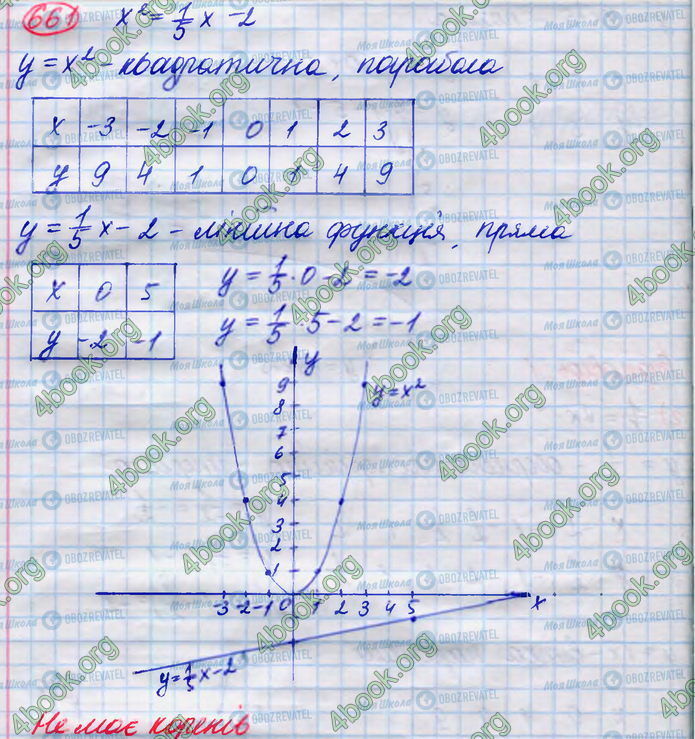 661 x² = 1/5 x - 2
y = x² - квадратична, парабола
x -3 -2 -1 0 1 2 3
y 9 4 1 0 1 4 9
y = 1/5 x - 2 - лінійна функція, пряма
x 0 5
y -2 -1
y = 1/5 · 0 - 2 = -2
y = 1/5 · 5 - 2 = -1
y
y = x²
9
8
7
6
5
4
3
2
1
-3 -2 -1 0 1 2 3 4 5 x
y = 1/5 x - 2
Не має коренів
4book.org
Моя Школа OBOZREVATEL